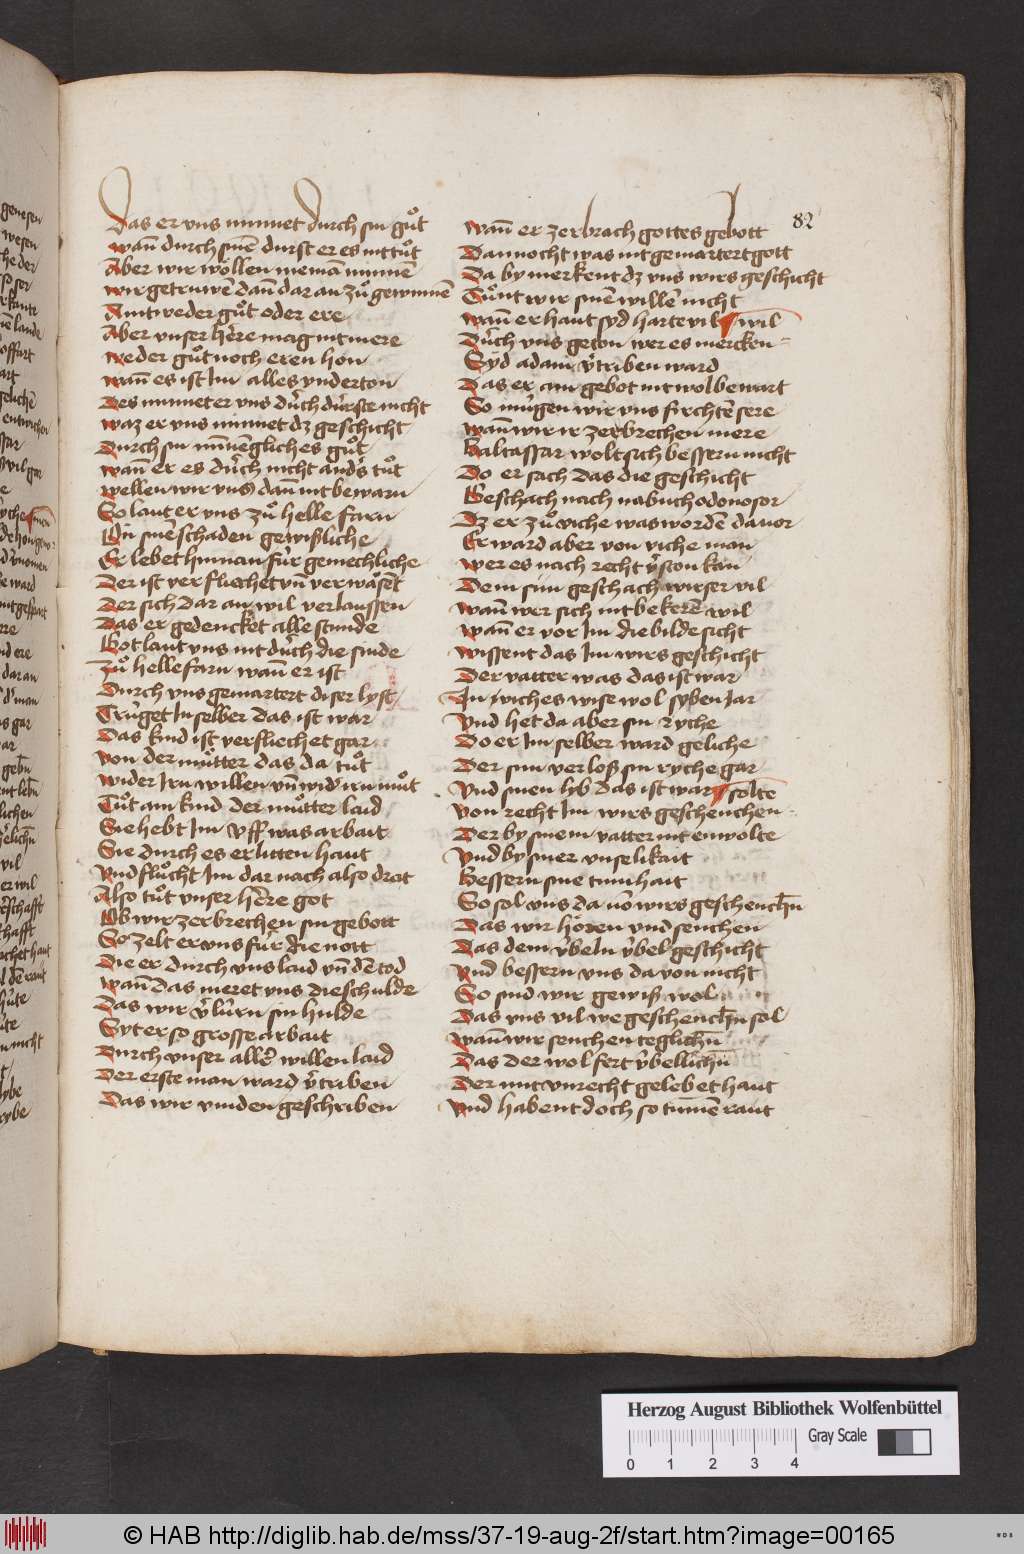 Das er vns minnet durch sin guͦt
wan̄ durch sinē durst er es nit tuͦt
Aber wir wöllen niemā minnē
wir getruwē dan̄ dar an zuͦ gewinnen
Aintweder guͦt oder ere
Aber vnser hēre mag nit mere
weder guͦt noch eren hon
wan̄ es ist Im alles vnderton
Des minnet er vns durch dürste nicht
waz er vns minnet dz geschicht
Durch sin guͦt
wan̄ er es durch nicht anders tuͦt
wellen wir vns dan̄ nit bewarn
So laut er vns zuͦ helle farn
On sinē schaden gewißliche
Er lebet hinnan für gemechliche
Der ist verfluͦchet vn̄ verwäset
Der sich dar an wil verlaussen
Das er gedencket alle stunde
Got laut vns nit durch die sinde
Zuͦ helle farn wan̄ er ist
Durch vns gemartert diser lyst
Trüget In selber das ist war
Das kind ist verfluͦchet gar
von der muͦtter das da tuͦt
wider Irn willen vn̄ wider irn muͦt
Tuͦt ain kind der muͦtter laid
Sie hebt Im vff was arbait
Sie durch es erlitten haut
vnd fluͦcht Im dar nach also drat
Also tuͦt vnser hēre got
Ob wir zerbrechen sin gebott
So zelt er vns für die nott
Die er durch vns laid vn̄ dē tod
wan̄ das meret vns die schulde
Das wir v̄lürn sin hulde
Syt er so grosse arbait
Durch vnser aller willen laid
Der erste man ward v̄triben
Das wir vinden geschriben
82
wan̄ er zerbrach gottes gebott
Dannocht was nit gemartert gott
Da by merkent dz vns wirs geschicht
Tuͦnt wir sinē willē nicht
wan̄ er haut syd harte vil
Durch vns geton wer es mercken wil
Syd adam v̄triben ward
Das er ain gebot nit wol bewart
So mügen wir vns firchtē sere
wan̄ wir ir zerbrechen mere
Baltassar wolt sich bessern nicht
Do er sach das die geschicht
Beschach nach nabuchodonosor
Dz er zuͦ viche was wordē dauor
Er ward aber von viche man
wer es nach recht v̄ston kan
Dem sun geschach wirser vil
wan̄ wer sich nit bekerē wil
wan̄ er vor Im die bilde sicht
wissent das Im wirs geschicht
Der vatter was das ist war
In viches wise wol syben Jar
vnd het da aber sin ryche
Do er Im selber ward geliche
Der sun verloß sin ryche gar
vnd sinen lib das ist war
von recht Im wirs geschenchen soltē
Der by sinem vatter nit enwolte
vnd by siner vnselikait
Bessern sine tumhait
So sol vns da uo wirs geschench̄n
Das wir hören vnd senchen
Das dem v̈beln v̈bel geschicht
vnd bessern vns da von nicht
So sind wir gewiß wol
Das vns vil we geschench̄n sol
wan̄ wir senchen teglich̄n
Das der wol fert v̈bellich̄n
Der mit vnrecht gelebet haut
vnd habent doch so tum̄ē raut
Herzog August Bibliothek Wolfenbüttel
Gray Scale
0 1 2 3 4
© HAB http://diglib.hab.de/mss/37-19-aug-2f/start.htm?image=00165